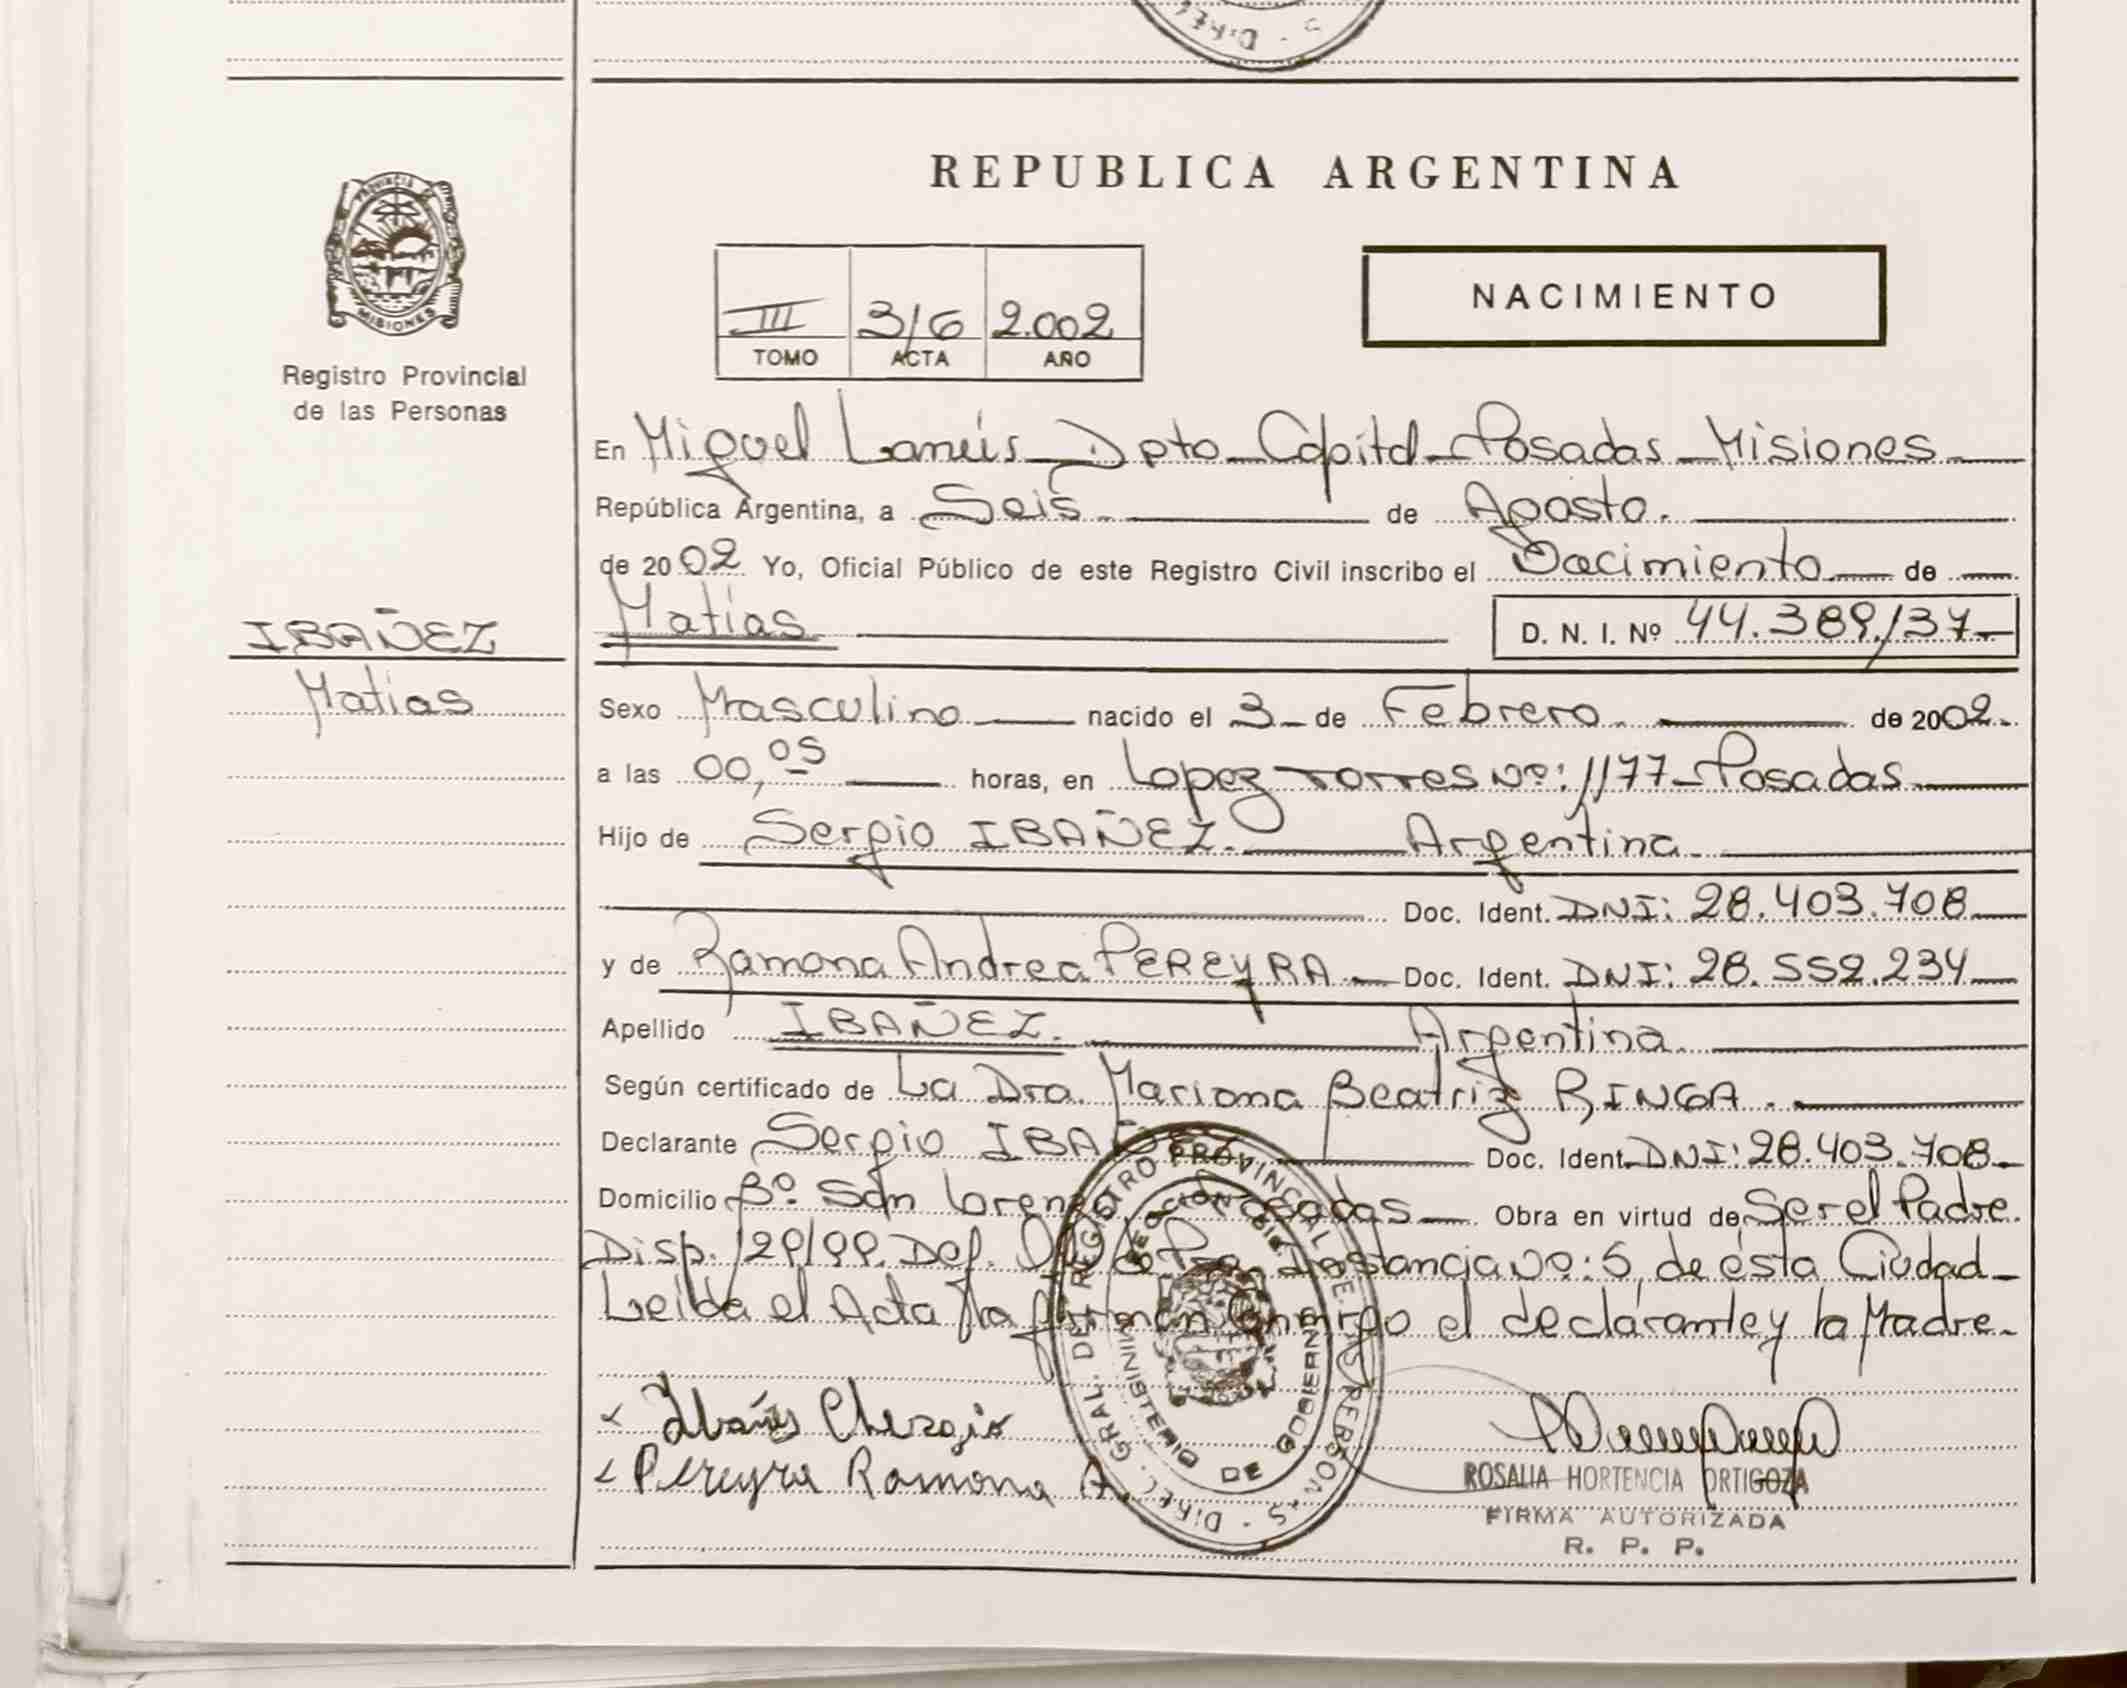 REPUBLICA ARGENTINA
PROVINCIA
MISIONES
Registro Provincial
de las Personas
III 3/6 2.002
TOMO ACTA AÑO
NACIMIENTO
En Miguel Lanús Dpto Capital Posadas Misiones
República Argentina, a Seis de Agosto.
de 2002 Yo, Oficial Público de este Registro Civil inscribo el Nacimiento de
IBAÑEZ
Matías
Matías D. N. I. Nº 44.389.137
Sexo Masculino nacido el 3 de Febrero de 2002.
a las 00,05 horas, en Lopez Torres Nº: 1177 Posadas
Hijo de Sergio IBAÑEZ. Argentina
Doc. Ident. DNI: 28.403.708
y de Ramona Andrea PEREYRA Doc. Ident. DNI: 28.552.234
Apellido IBAÑEZ. Argentina.
Según certificado de La Dra. Mariana Beatriz RINGA.
Declarante Sergio Doc. Ident. DNI: 28.403.708
Domicilio Bº San Lorenzo Posadas Obra en virtud de Ser el Padre.
Disp. 129/99. Def. Instancia Nº: 5, de ésta Ciudad
Leída el Acta la firman Conmigo el declarante y la Madre.
DIREC. GRAL. DEL REGISTRO PROVINCIAL DE LAS PERSONAS
MINISTERIO DE GOBIERNO
Ibañes Cherogio
Pereyra Ramona A.
ROSALIA HORTENCIA ORTIGOZA
FIRMA AUTORIZADA
R. P. P.